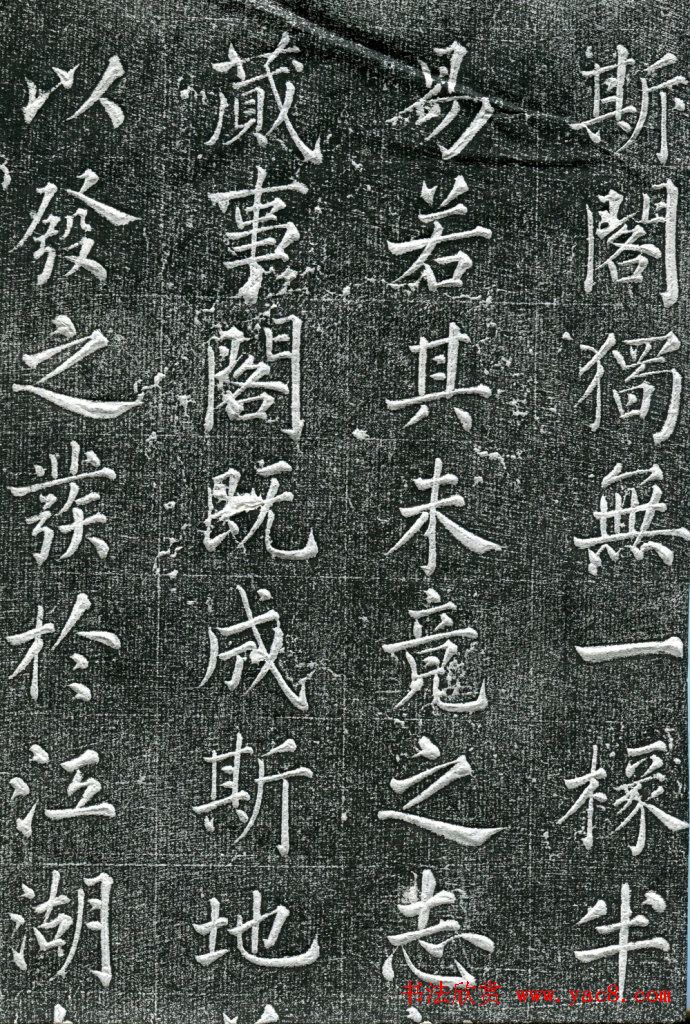 斯閣獨無一椽半
易若其未竟之志
蕆事閣既成斯地
以發之發於江湖
书法欣赏 www.yac8.com